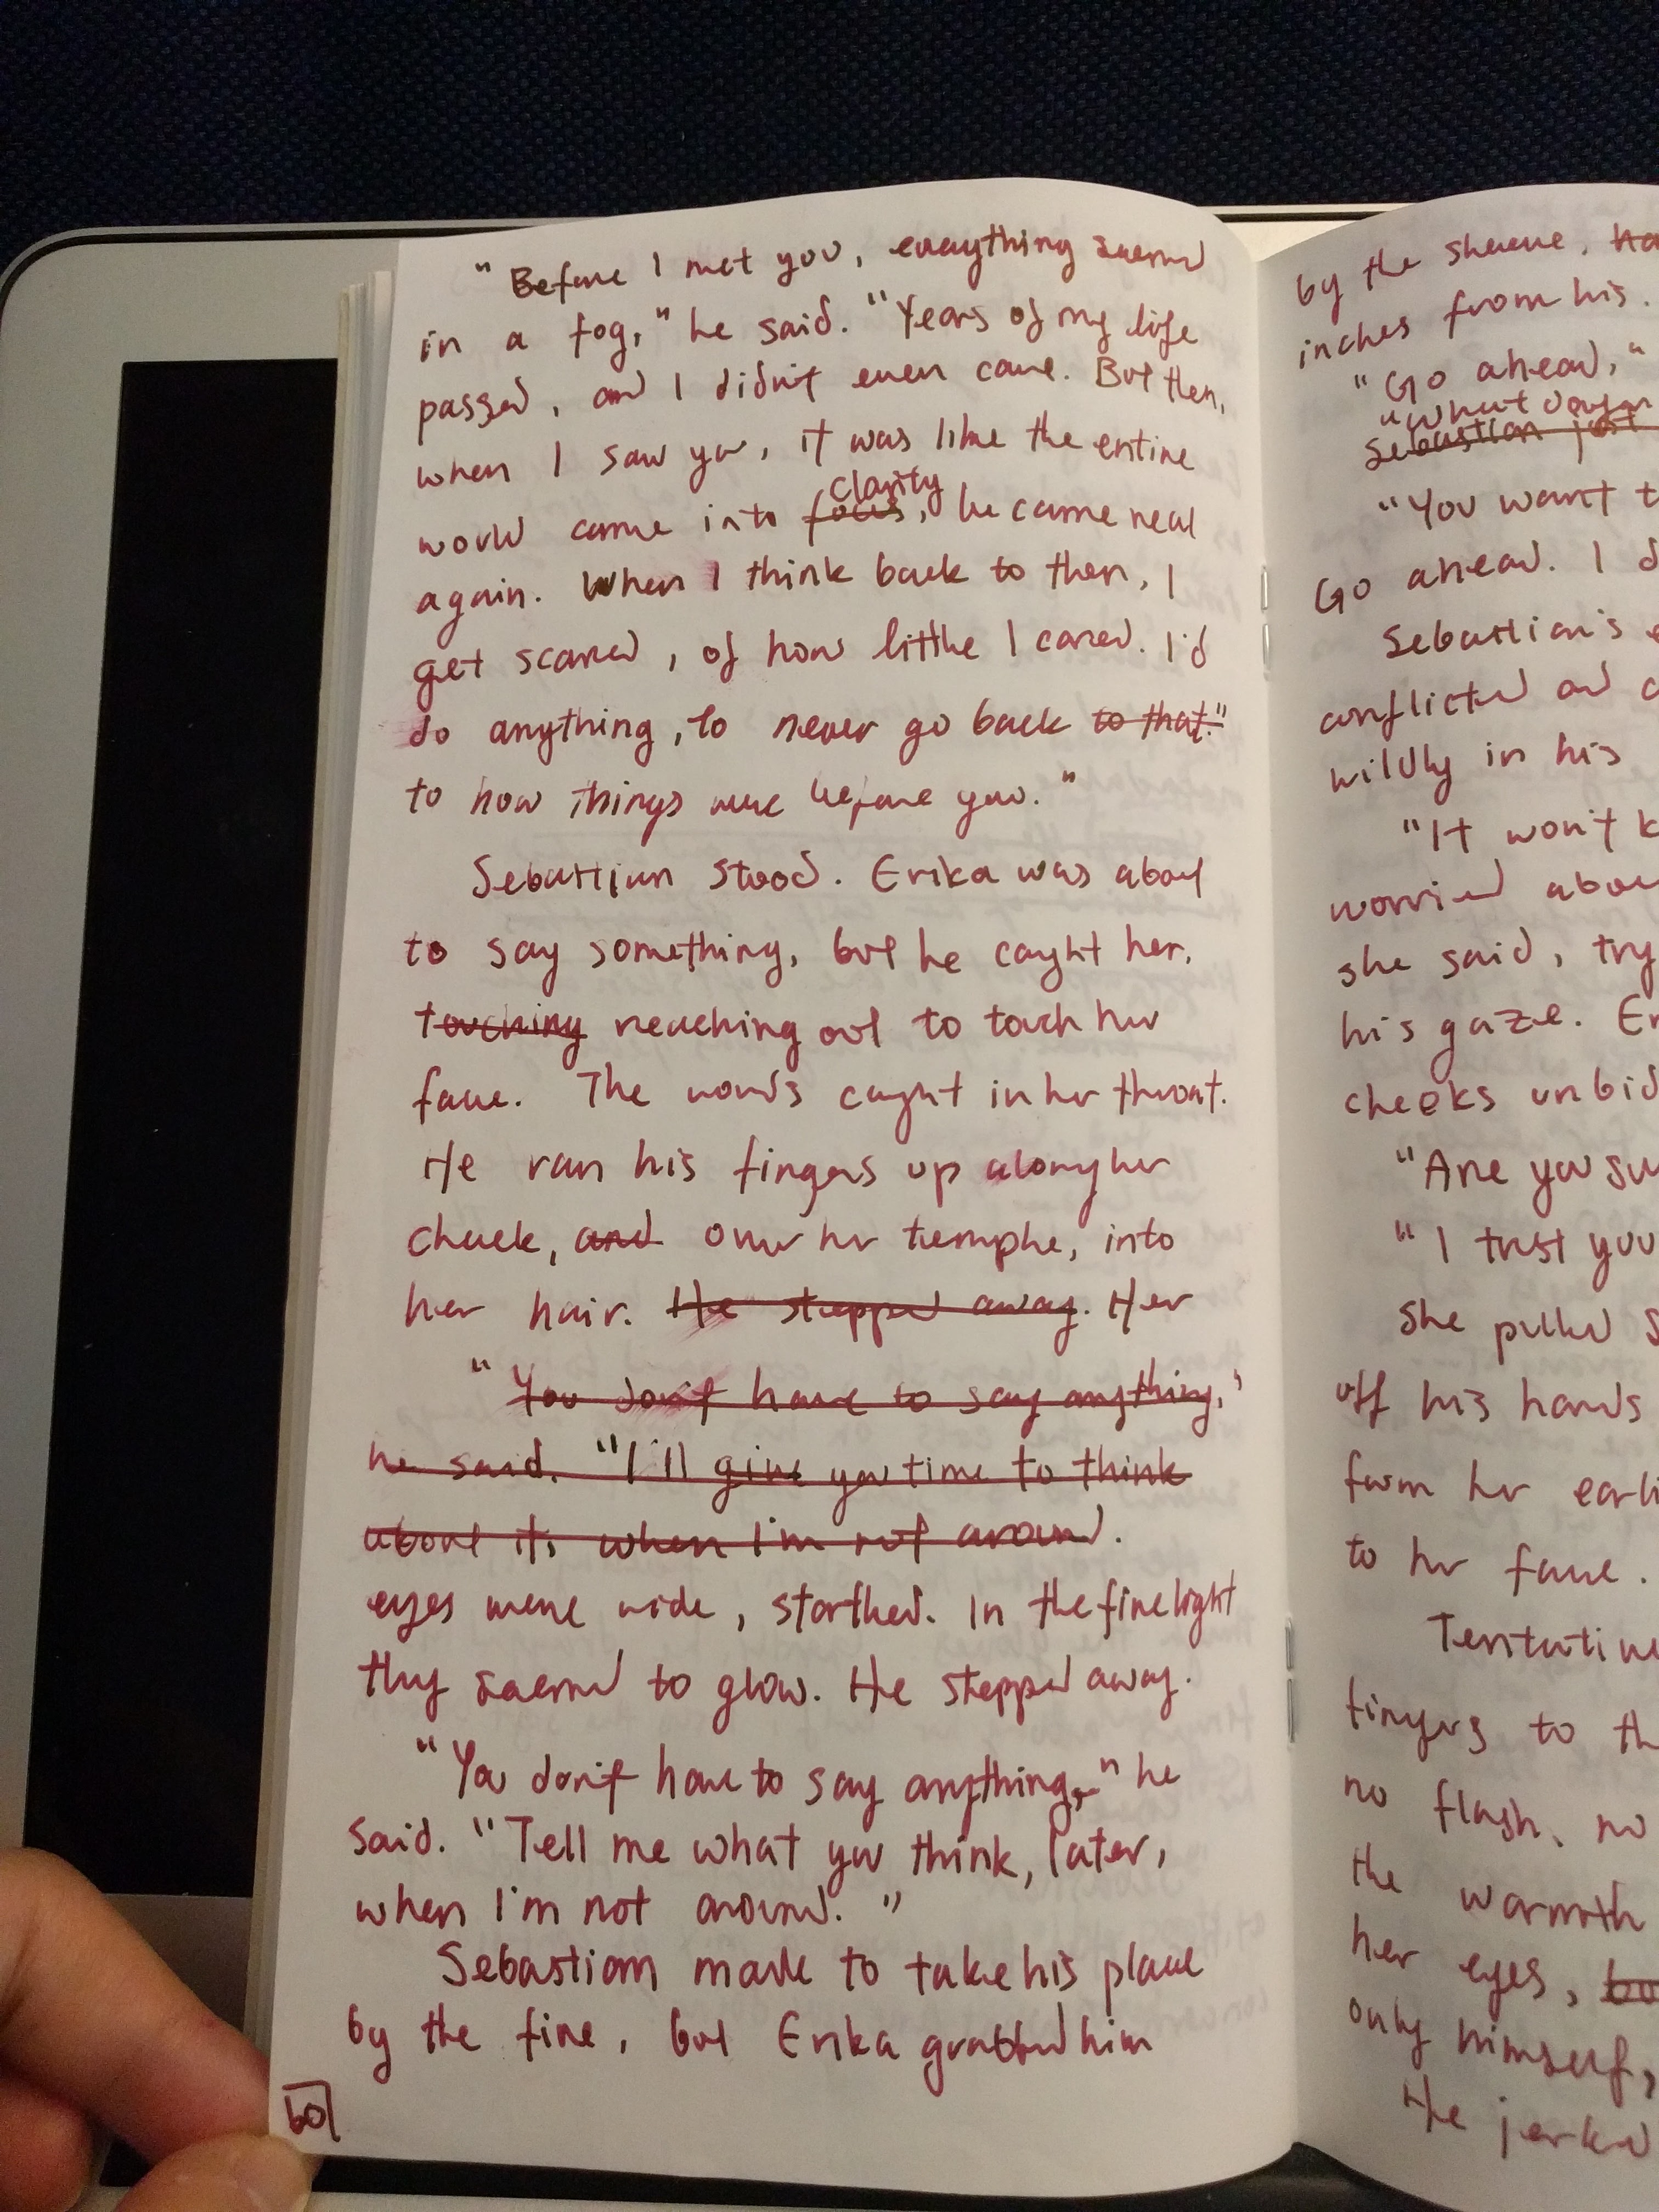 "Before I met you, everything seemed
in a fog," he said. "Years of my life
passed, and I didn't even care. But then,
when I saw you, it was like the entire
clarity
world came into focus, became real
again. When I think back to then, I
get scared, of how little I cared. I'd
do anything, to never go back to that."
to how things were before you."
Sebastian stood. Erika was about
to say something, but he caught her,
touching reaching out to touch her
face. The words caught in her throat.
He ran his fingers up along her
cheek, and over her temple, into
her hair. He stepped away. Her
"You don't have to say anything,"
he said. "I'll give you time to think
about it, when I'm not around.
eyes were wide, startled. In the firelight
they seemed to glow. He stepped away.
"You don't have to say anything," he
said. "Tell me what you think, later,
when I'm not around."
Sebastian made to take his place
by the fire, but Erika grabbed him
60
by the sleeve,
inches from his.
"Go ahead,"
"What
Sebastian just
"You want
Go ahead. I
Sebastian's
conflicted and
wildly in his
"It won't
worried
she said,
his gaze.
cheeks
"Are you
"I trust you
She pulled
off his hands
from her
to her face.
fingers to
no flash, no
the warmth
her eyes,
only himself,
He jerked